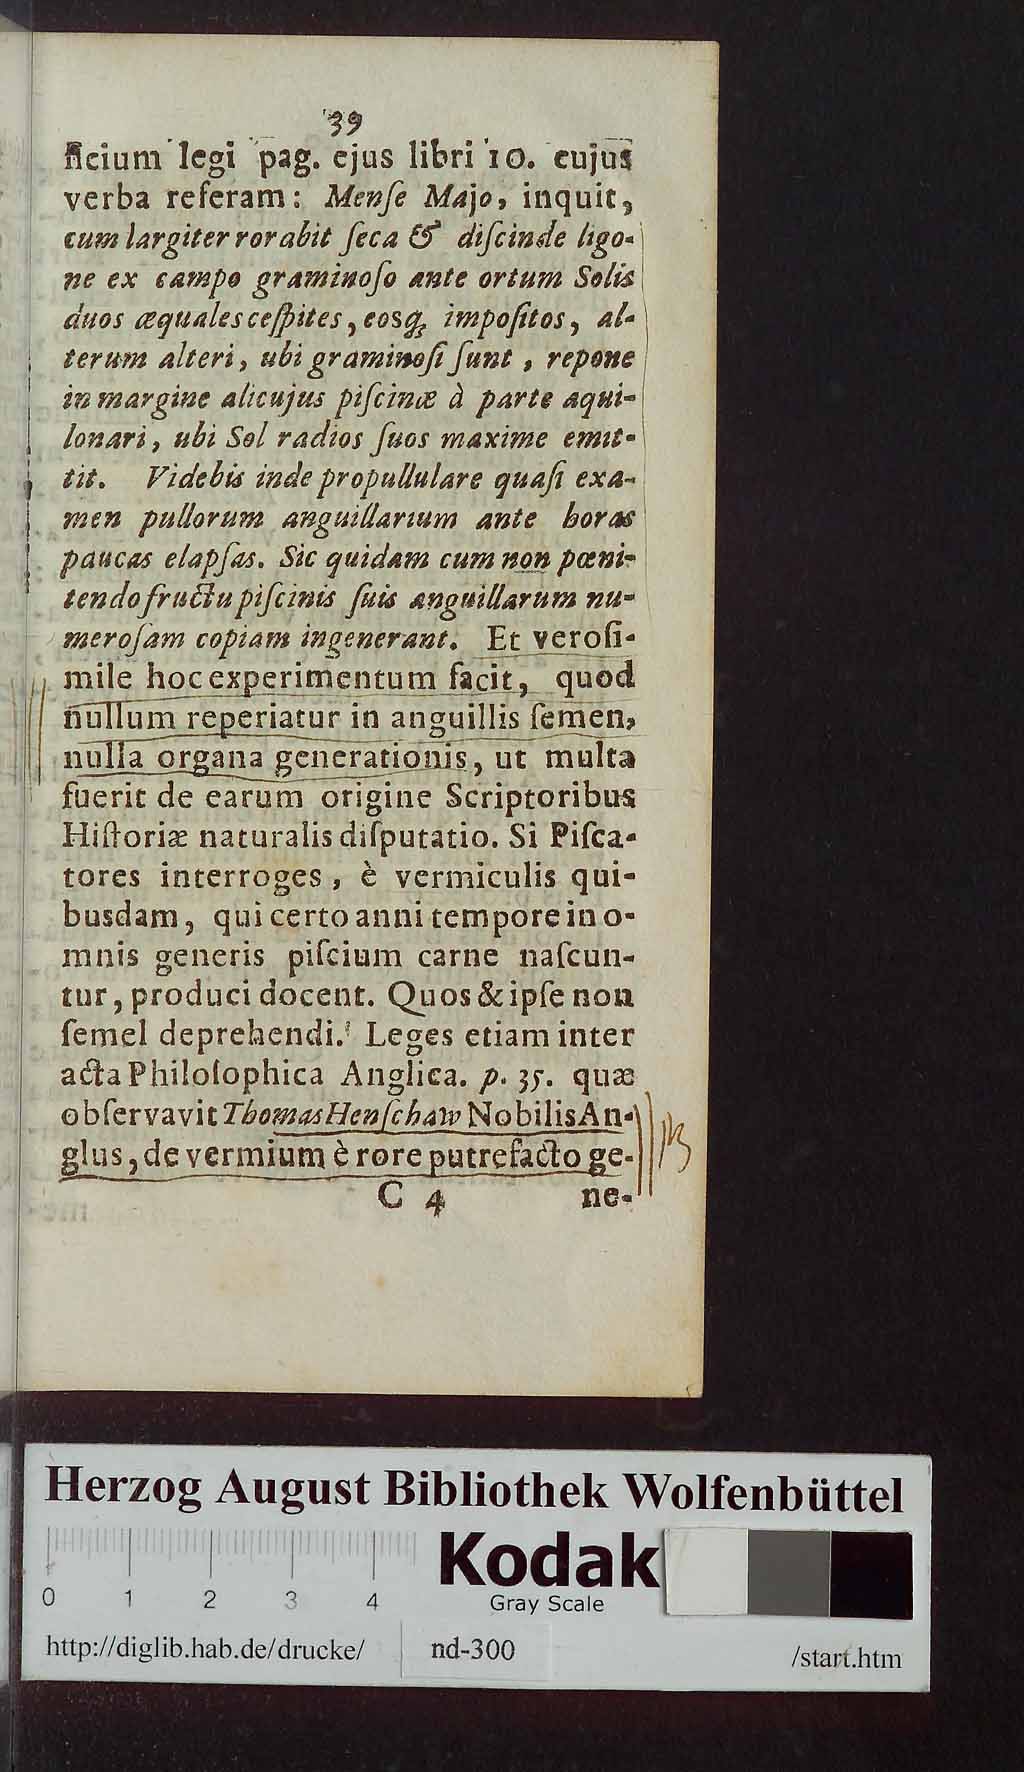 39
ficium legi pag. ejus libri 10. cujus
verba referam: Menſe Majo, inquit,
cum largiter rorabit ſeca & diſcinde ligo-
ne ex campo graminoſo ante ortum Solis
duos æquales ceſpites, eosq; impoſitos, al-
terum alteri, ubi graminoſi ſunt, repone
in margine alicujus piſcinæ à parte aqui-
lonari, ubi Sol radios ſuos maxime emit-
tit. Videbis inde propullulare quaſi exa-
men pullorum anguillarium ante horas
paucas elapſas. Sic quidam cum non pœni-
tendo fructu piſcinis ſuis anguillarum nu-
meroſam copiam ingenerant. Et veroſi-
mile hoc experimentum facit, quod
nullum reperiatur in anguillis ſemen,
nulla organa generationis, ut multa
fuerit de earum origine Scriptoribus
Hiſtoriæ naturalis diſputatio. Si Piſca-
tores interroges, è vermiculis qui-
busdam, qui certo anni tempore in o-
mnis generis piſcium carne naſcun-
tur, produci docent. Quos & ipſe non
ſemel deprehendi. Leges etiam inter
acta Philoſophica Anglica. p. 35. quæ
obſervavit Thomas Henſchaw Nobilis An-
glus, de vermium è rore putrefacto ge-
C 4 ne-
Herzog August Bibliothek Wolfenbüttel
0 1 2 3 4
Kodak
Gray Scale
http://diglib.hab.de/drucke/ nd-300 /start.htm